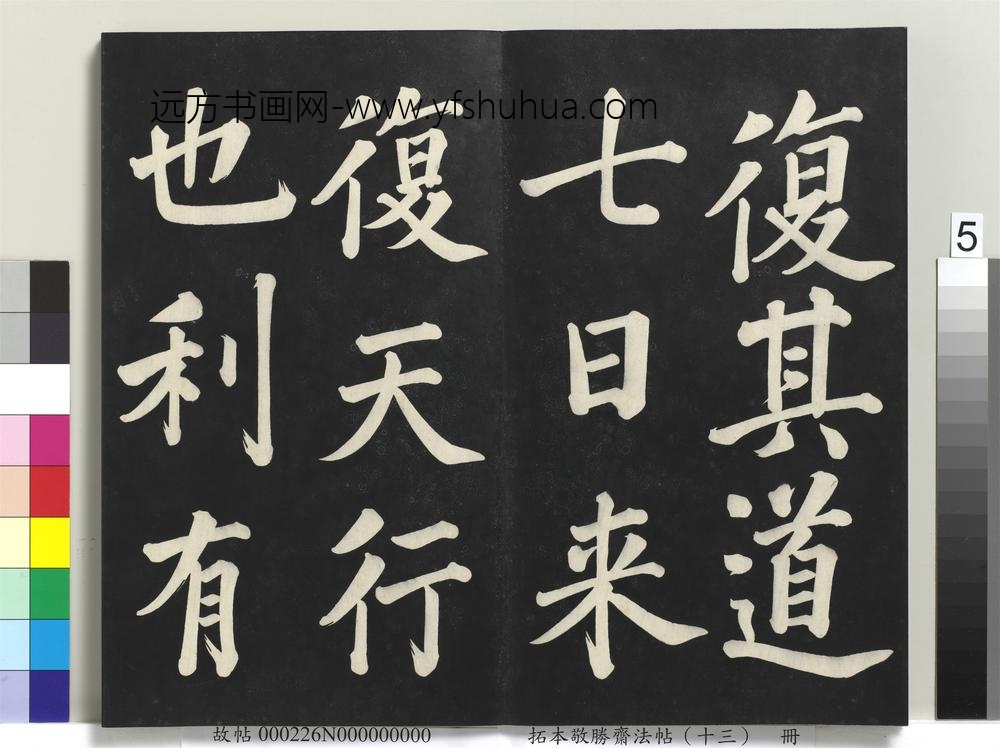 復其道
七日来
復天行
也利有
远方书画网-www.yfshuhua.com
5
故帖 000226N000000000
拓本敬勝齋法帖（十三） 冊